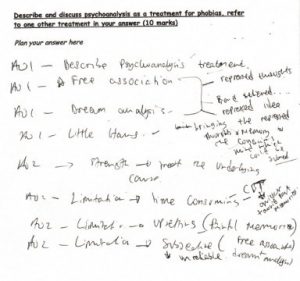 Describe and discuss psychoanalysis as a treatment for phobias, refer
to one other treatment in your answer (10 marks)
Plan your answer here
AO1 - Describe Psychoanalysis treatment.
AO1 - Free association
repressed thoughts
AO1 - Dream analysis
repressed idea
bringing the repressed
AO1 - Little Hans
AO2 → Strength → treat the underlying
cause
AO2 - Limitation → time consuming
CBT
AO2 - Limitation → upsetting (painful memories)
AO2 - Limitation → Subjective (Free association
unreliable. dream analysis)